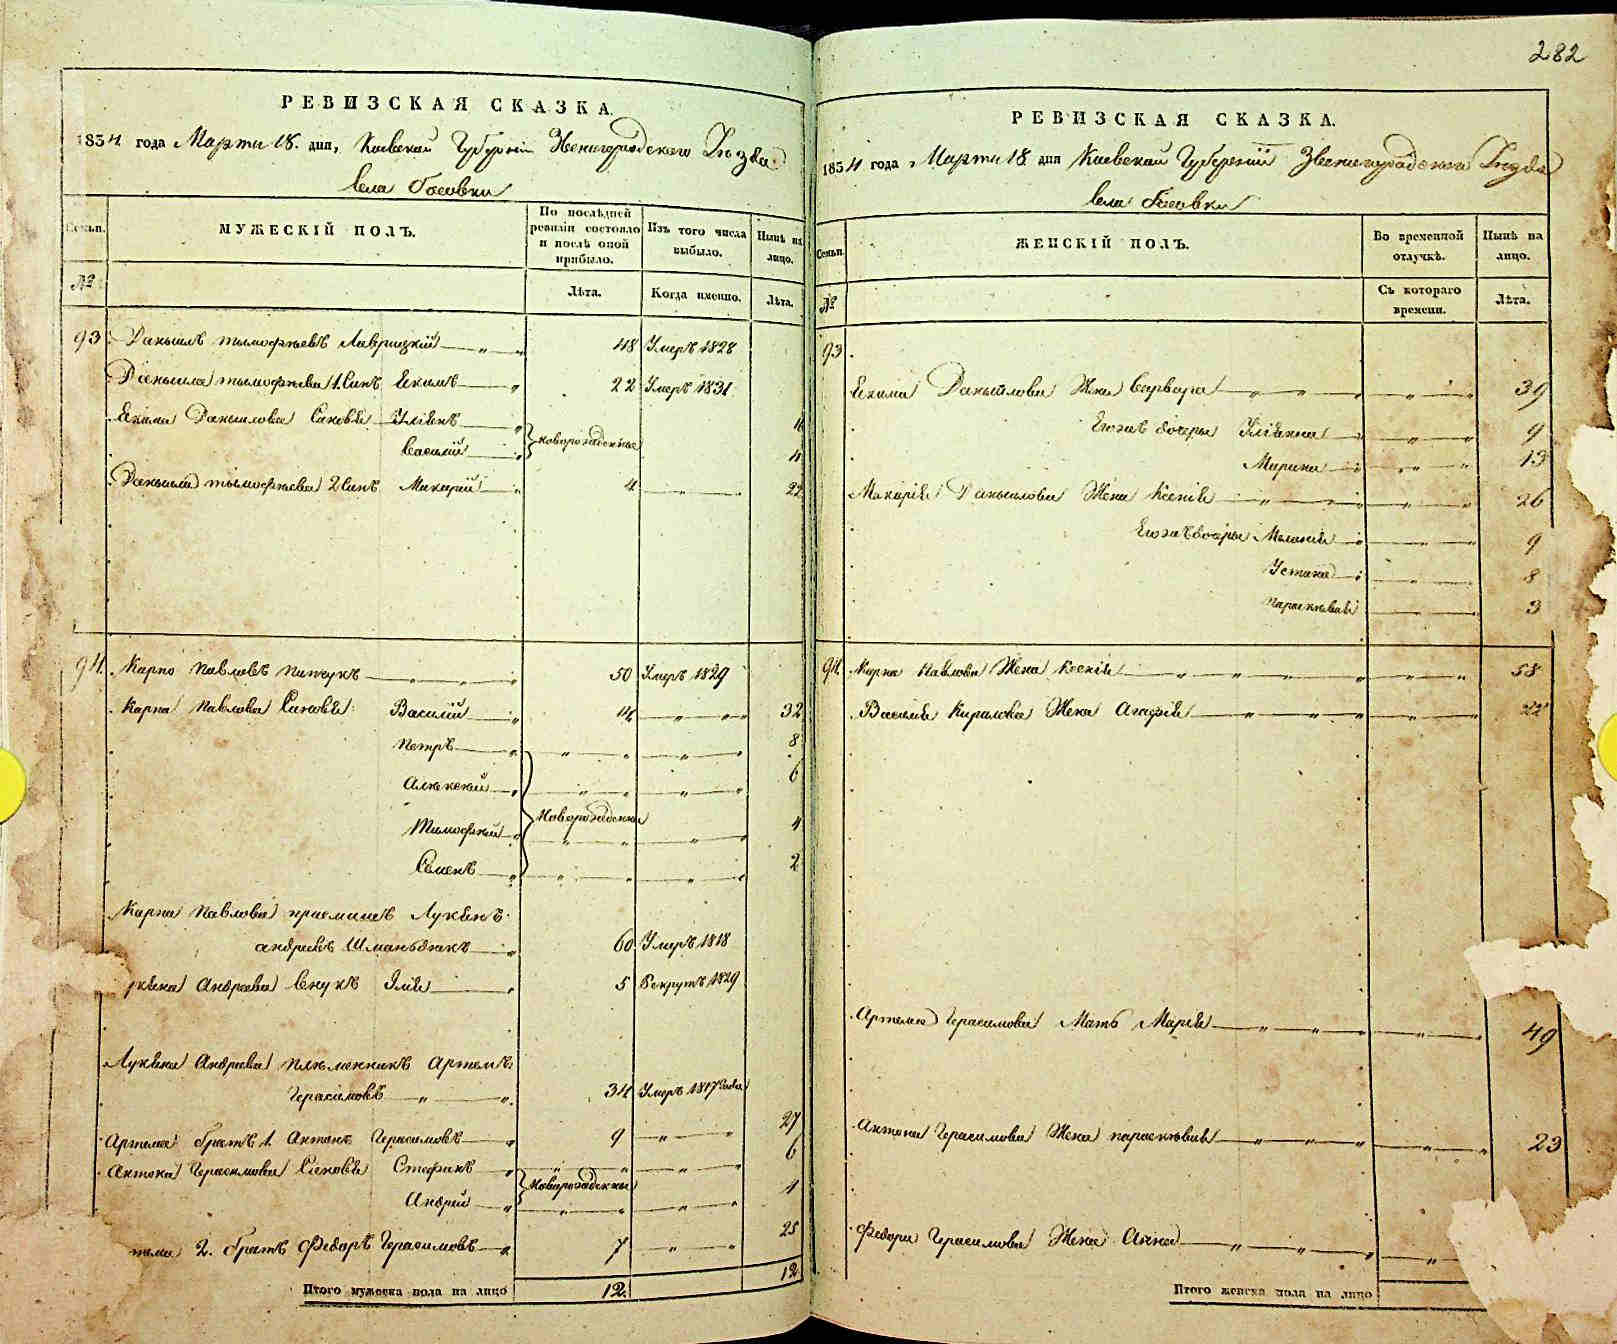 282
РЕВИЗСКАЯ СКАЗКА.
1834 года Марта 18. дня, Киевской Губернии Звенигородского Уѣзда
Села Гусовки
Семьи.
МУЖЕСКІЙ ПОЛЪ.
По послѣдней ревизіи состояло и послѣ оной прибыло.
Изъ того числа выбыло.
Нынѣ на лицо.
№
Лѣта.
Когда именно.
Лѣта.
93 Данышлъ тымофѣевъ Лаврицкій 48 Умеръ 1828
Данышла тымофѣева 1. Сынъ Екимъ 22 Умеръ 1831
Екима Данышлова Сыновья
Василій новорожденные 4
Данышла тымофѣева 2 Сынъ Макарій 4 22
94. Карпо Павловъ 50 Умеръ 1829
Карпа Павлова Сыновья Василій 14 32
Петръ 8
Алексей 6
Тимофей Новорожденные 4
Семенъ 2
Карпа Павлова приемышъ Лукянъ
андреевъ 60 Умеръ 1818
Андреева Внукъ Илія 5 Рекрутъ 1829
Лукяна Андреева племенникъ Артемъ
Герасимовъ 34 Умеръ 1817 года
Артема братъ 1. Антонъ Герасимовъ 9 27
Антона Герасимова Сыновья Стефанъ 6
Андрей Новорожденные 4
тема 2. братъ Федоръ Герасимовъ 7 25
Итого мужеска пола на лицо 12. 12
РЕВИЗСКАЯ СКАЗКА.
1834 года, Марта 18 дня Киевской Губерніи Звенигородскаго Уѣзда
Села Гусовки
Семьи.
ЖЕНСКІЙ ПОЛЪ.
Во временной отлучкѣ.
Нынѣ на лицо.
№
Съ котораго времени.
Лѣта.
93
Екима Данышлова Жена Варвара 39
Егожъ дочеры Уліянна 9
Марина 13
Макарія Данышлова Жена Ксенія 26
Егожъ дочеры Меланія 9
Устина 8
параскевія 3
94. Карпа Павлова Жена Ксенія 58
Василія Карпова Жена Агафія 22
Артема Герасимова Мать Марія 49
Антона Герасимова Жена параскевія 23
Федора Герасимова Жена Анна
Итого женска пола на лицо